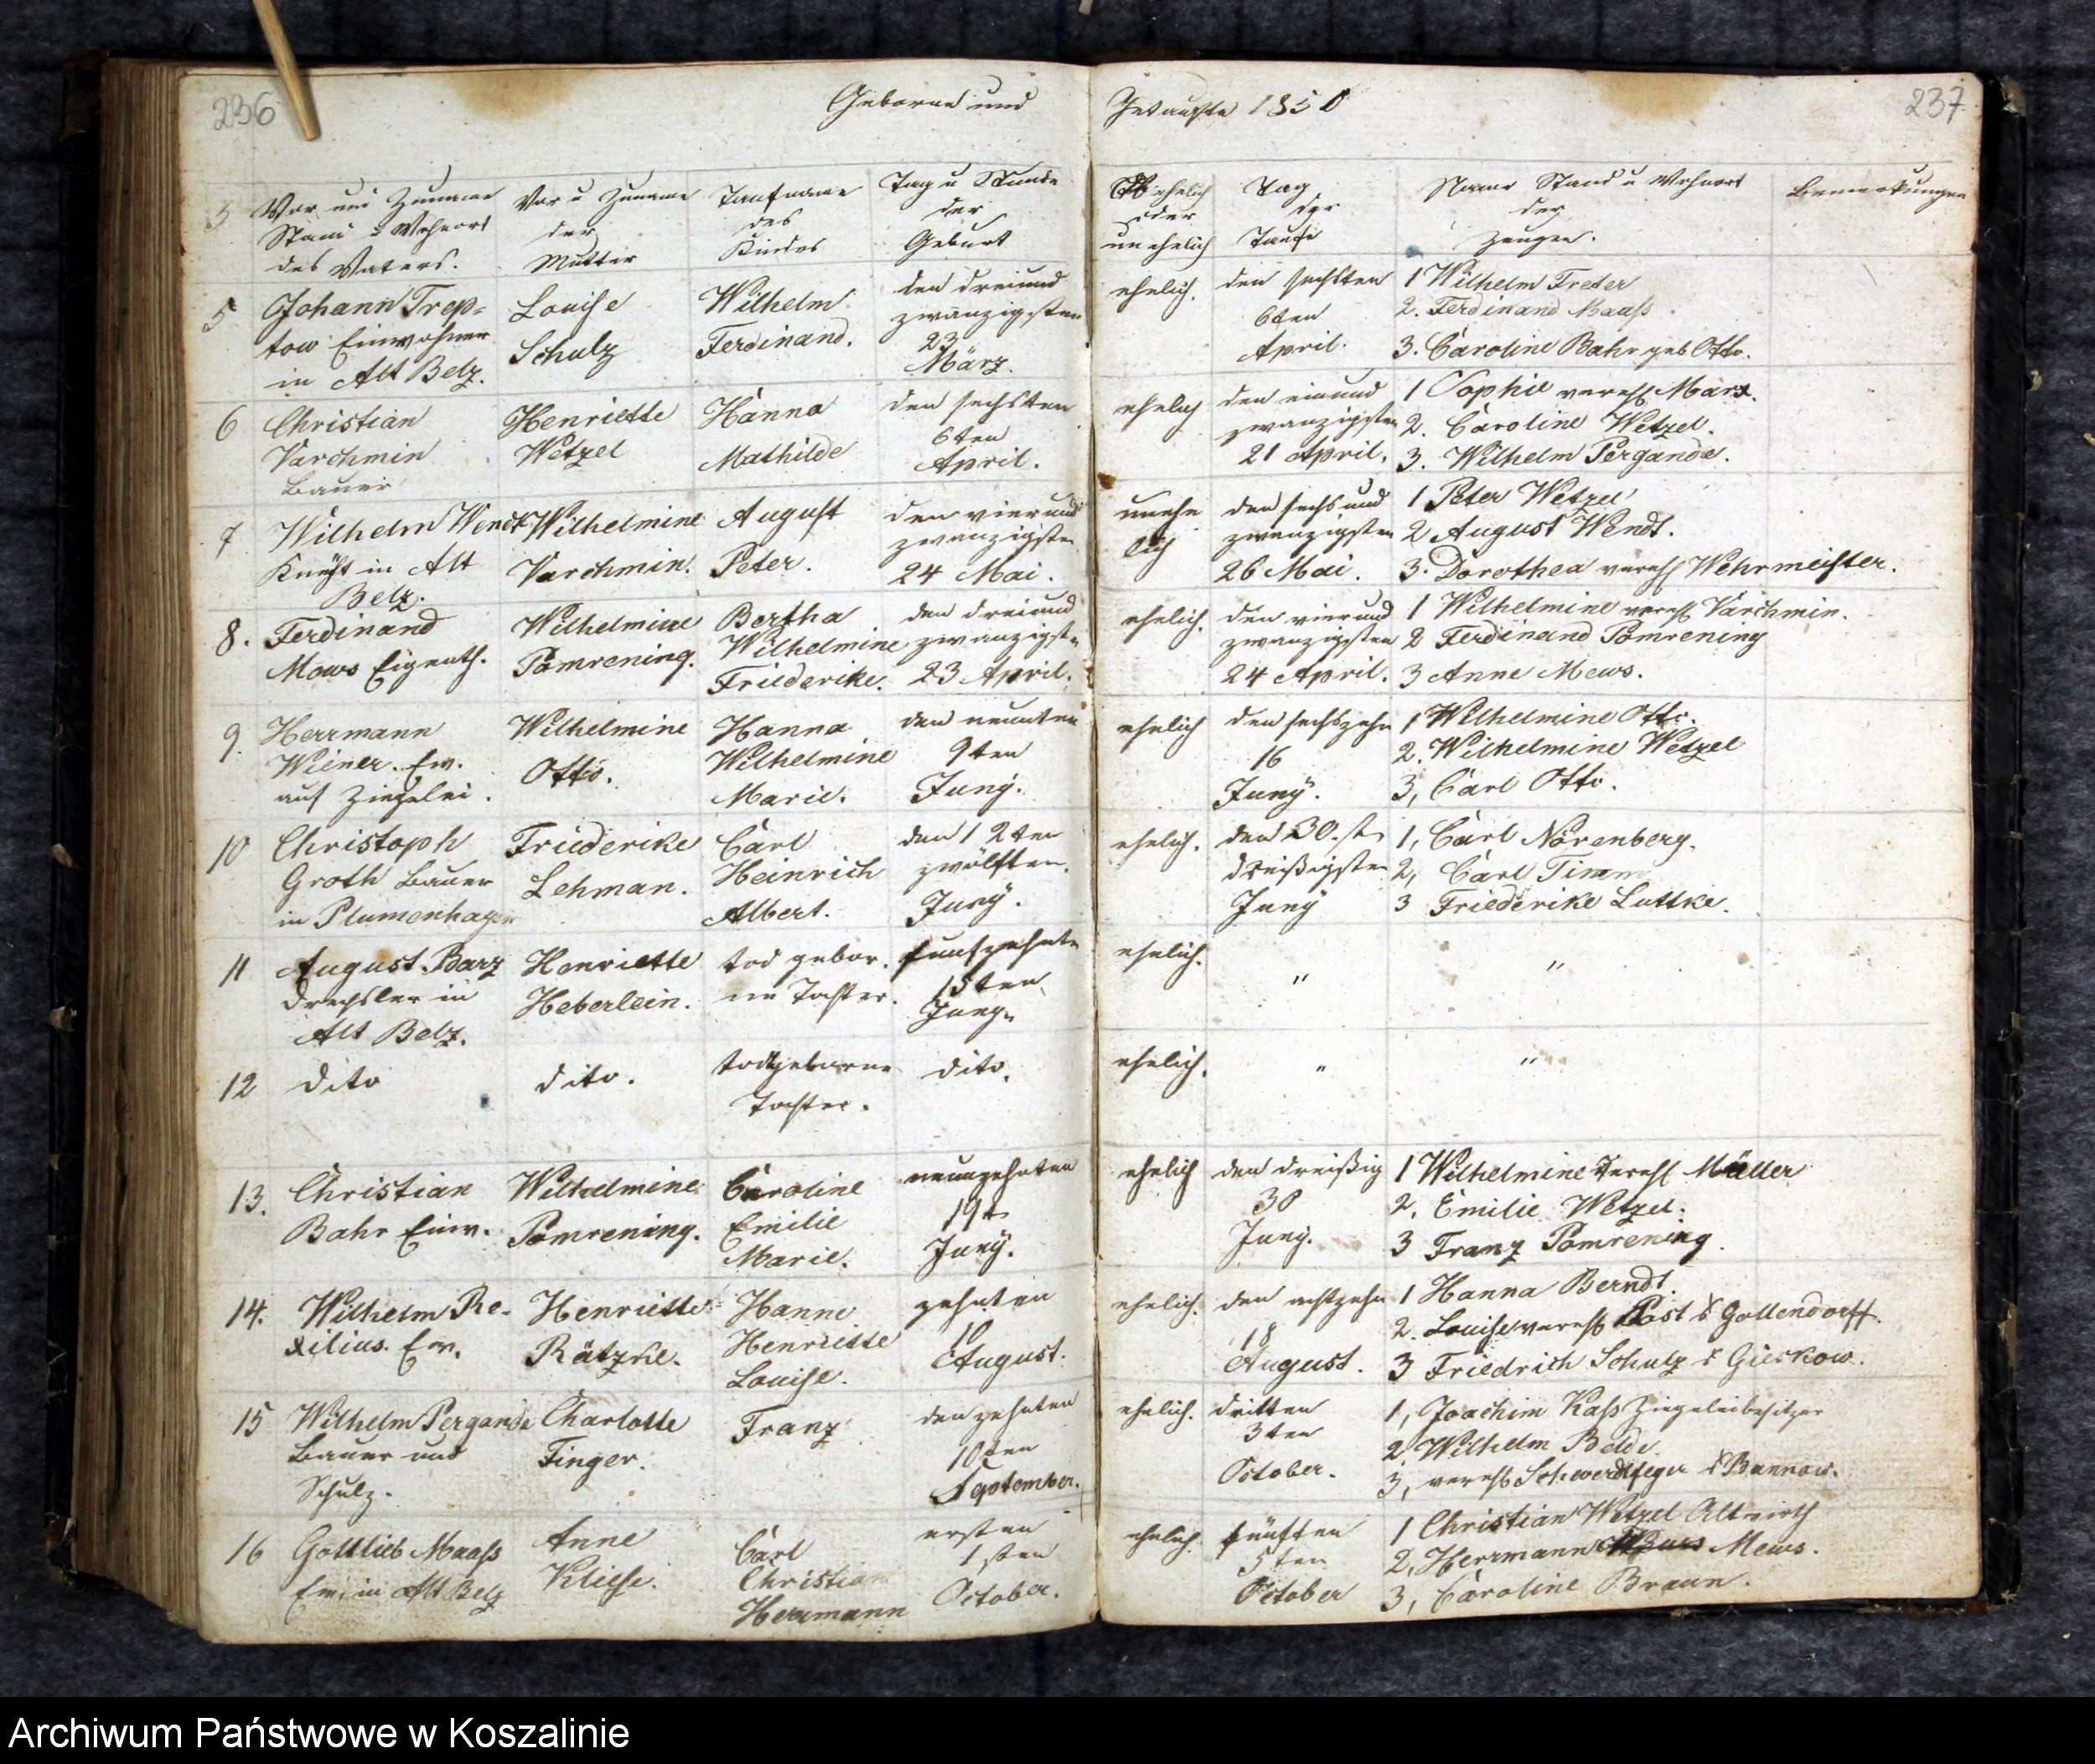 236
Geborne und
№ Vor und Zuname
Stand u Wohnort
des Vaters.
Vor u Zuname
der
Mutter
Taufname
des
Kindes
Tag u Stunde
der
Geburt
5 Johann Trep=
tow Einwohner
in Alt Belz.
Louise
Schulz
Wilhelm
Ferdinand.
den dreiund
zwanzigsten
23
März.
6 Christian
Varchmin
Bauer
Henriette
Wetzel
Hanna
Mathilde
den sechsten
6ten
April.
7 Wilhelm Wendt
Knecht in Alt
Belz.
Wilhelmine
Varchmin.
August
Peter.
den vierund
zwanzigsten
24 Mai.
8. Ferdinand
Mews Eigenth.
Wilhelmine
Pomrening.
Bertha
Wilhelmine
Friederike.
den dreiund
zwanzigsten
23 April.
9. Herrmann
Wiener. Ew.
auf Ziegelei.
Wilhelmine
Otto.
Hanna
Wilhelmine
Marie.
den neunten
9ten
Juny.
10 Christoph
Groth Bauer
in Plumenhagen
Friederike
Lehman.
Carl
Heinrich
Albert.
den 12ten
zwölften.
Juny.
11 August Barz
Drechsler in
Alt Belz.
Henriette
Heberlein.
tod gebor.
ne Tochter.
funfzehnte
15ten
Juny.
12 dito
dito.
todtgeborne
Tochter.
dito.
13. Christian
Bahr Einw.
Wilhelmine
Pomrening.
Caroline
Emilie
Marie.
neunzehnten
19t
Juny.
14. Wilhelm Re-
xilius. Ew.
Henriette
Rätzke.
Hanne
Henriette
Louise.
zehnten
10
August.
15 Wilhelm Pergande
Bauer und
Schulz.
Charlotte
Finger.
Franz
den zehnten
10ten
September.
16 Gottlieb Maass
Ew. in Alt Belz
Anne
Kliese.
Carl
Christian
Herrmann
ersten
1sten
October.
237
Getaufte 1850
Ob ehelich
oder
unehelich
Tag
der
Taufe
Name Stand u Wohnort
der
Zeugen.
Bemerkungen
ehelich.
den sechsten
6ten
April.
1 Wilhelm Freter
2. Ferdinand Maass
3. Caroline Bahr geb Otto.
ehelich
den einund
zwanzigsten
21 April.
1 Sophie vereh. Marx.
2. Caroline Wetzel.
3. Wilhelm Pergande.
unehe
lich
den sechs und
zwanzigsten
26 Mai.
1 Peter Wetzel
2 August Wendt.
3. Dorothea vereh. Wehrmeister.
ehelich.
den vierund
zwanzigsten
24 April.
1 Wilhelmine vereh. Varchmin.
2 Ferdinand Pomrening
3 Anne Mews.
ehelich
den sechszehn
16
Juny.
1 Wilhelmine Otto.
2. Wilhelmine Wetzel
3, Carl Otto.
ehelich.
den 30.st
dreißigsten
Juny
1, Carl Nörenberg.
2, Carl Timm
3 Friederike Luttke.
ehelich.
"
"
ehelich.
"
"
ehelich
den dreißig
30
Juny.
1 Wilhelmine vereh. Müller
2. Emilie Wetzel.
3 Franz Pomrening.
ehelich.
den achtzehn
18
August.
1 Hanna Berndt.
2. Louise vereh. Post Gollendorff.
3 Friedrich Schulz Gieskow.
ehelich.
dritten
3ten
October.
1, Joachim Kass Ziegeleibesitzer
2 Wilhelm Belde.
3, vereh. Schwerdtfeger Bannow.
ehelich.
fünften
5ten
October
1 Christian Wetzel Altwirth
2, Herrmann Mews.
3, Caroline Braun.
Archiwum Państwowe w Koszalinie